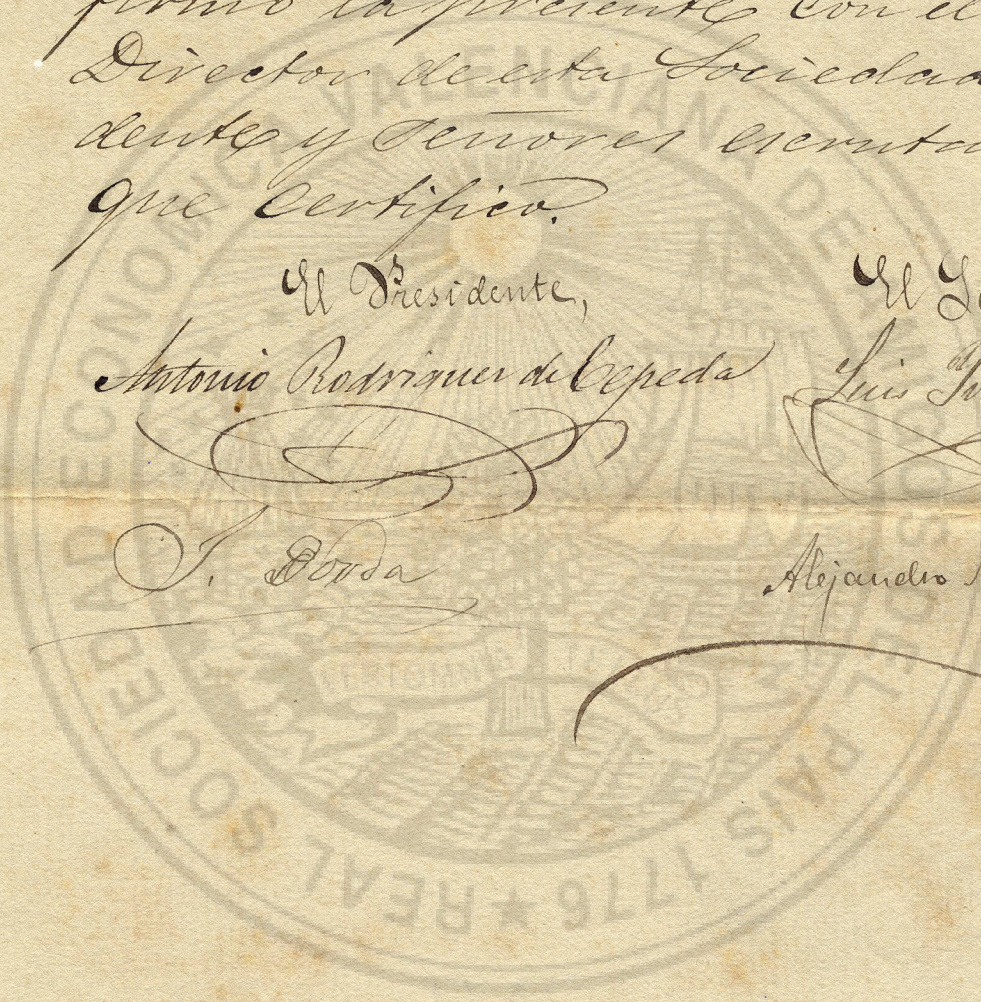 firmo la presente con el
Director de esta Sociedad
dente y Señores escruta
que certifico.
El Presidente,
El Se
Antonio Rodriguez de Cepeda
Luis
J. Borda
Alejandro
REAL SOCIEDAD ECONOMICA VALENCIANA DE AMIGOS DEL PAIS 1776